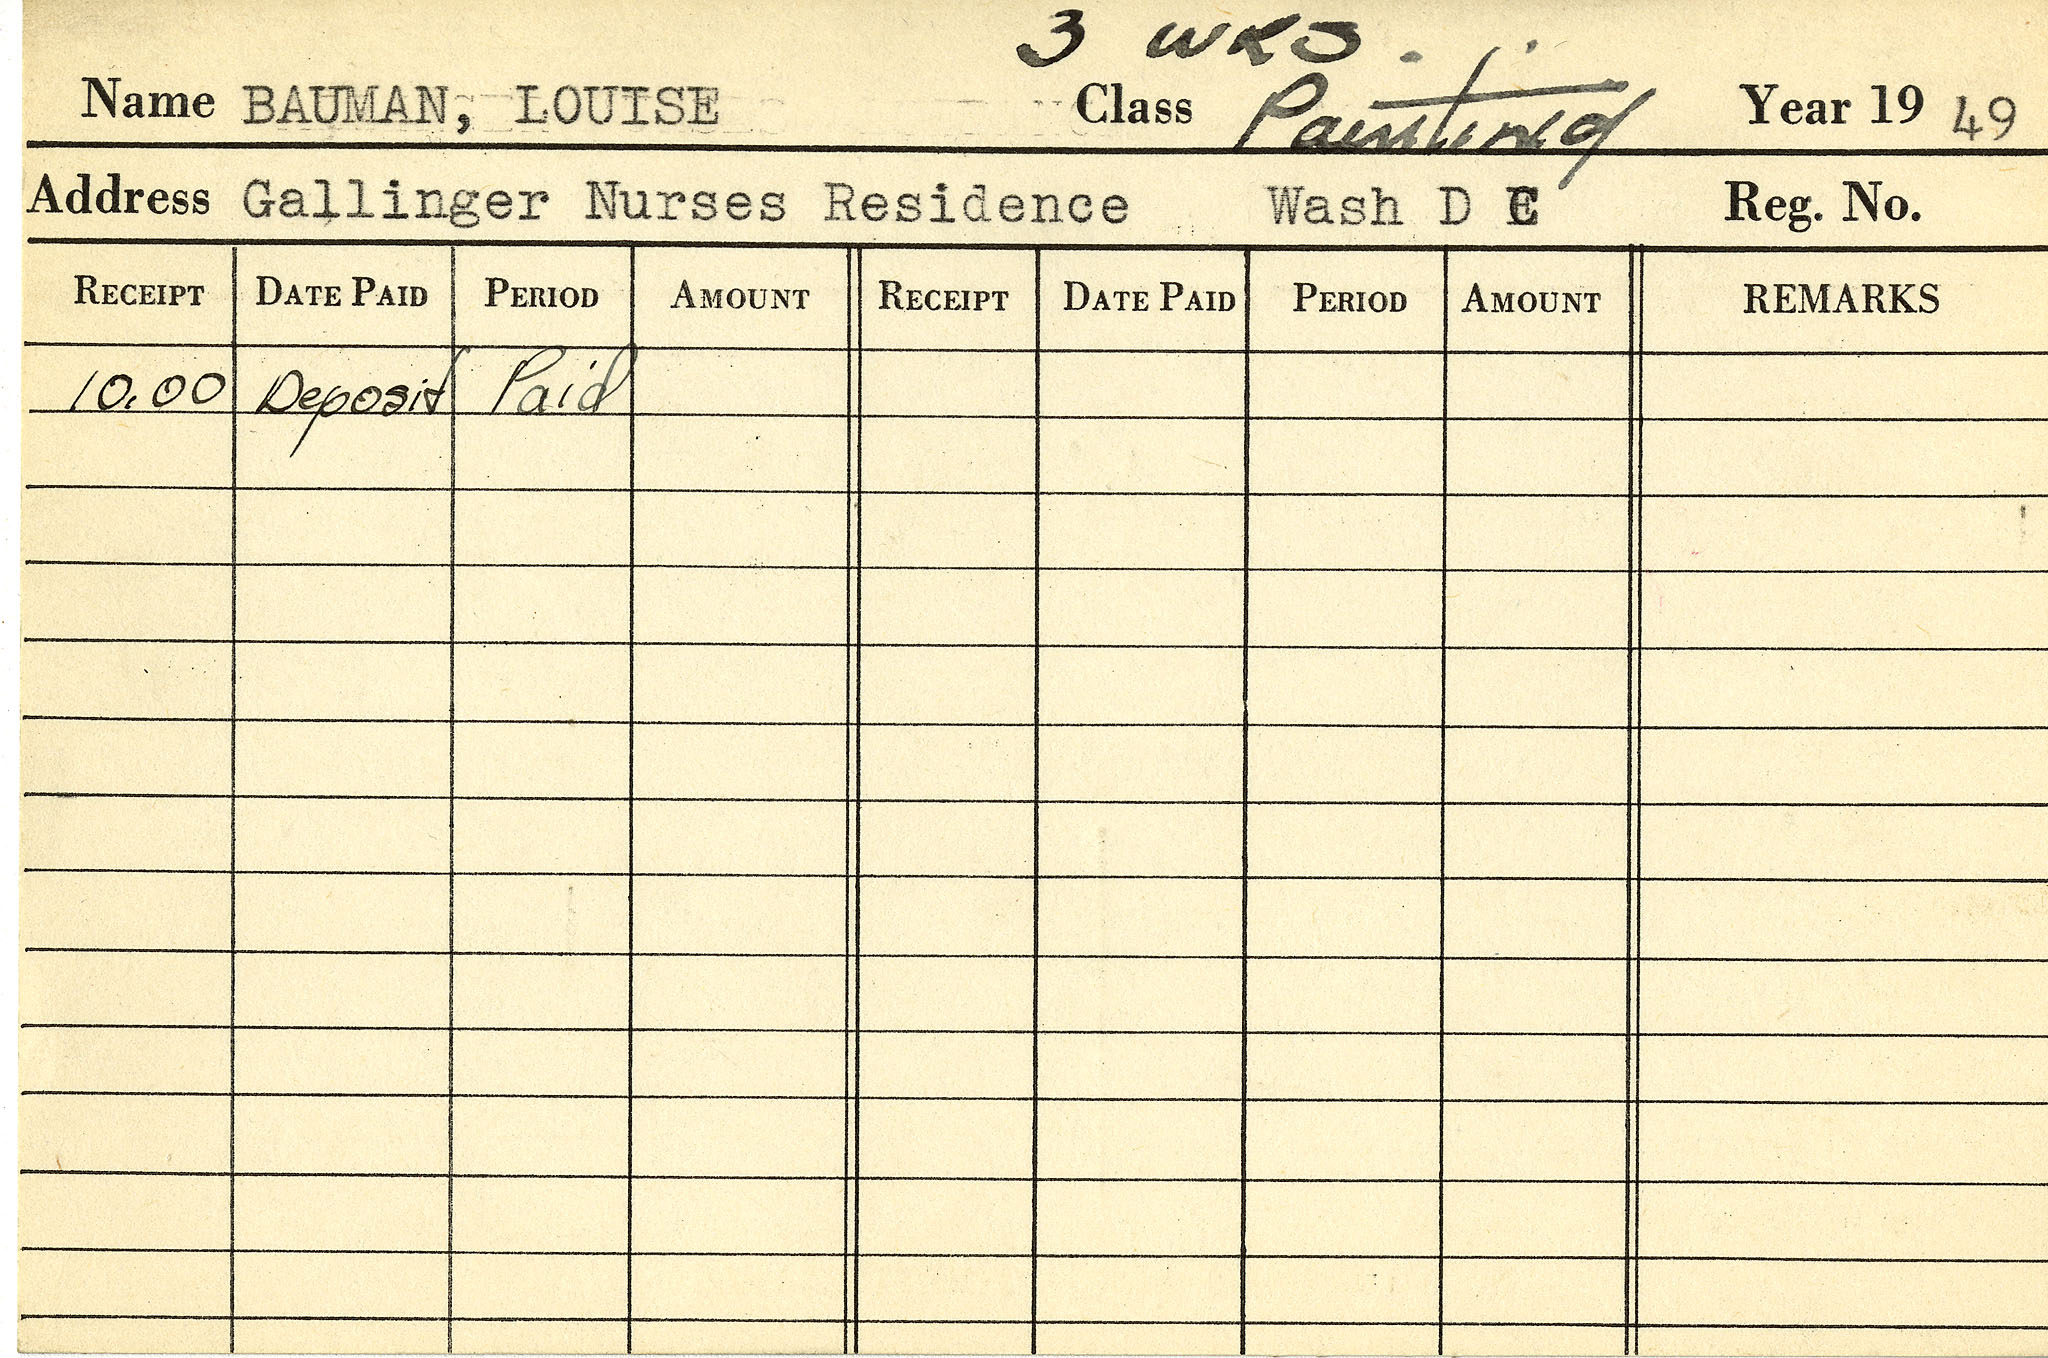 3 WKS.
Name BAUMAN, LOUISE Class Painting Year 19 49
Address Gallinger Nurses Residence Wash D C Reg. No.
RECEIPT DATE PAID PERIOD AMOUNT RECEIPT DATE PAID PERIOD AMOUNT REMARKS
10.00 Deposit Paid